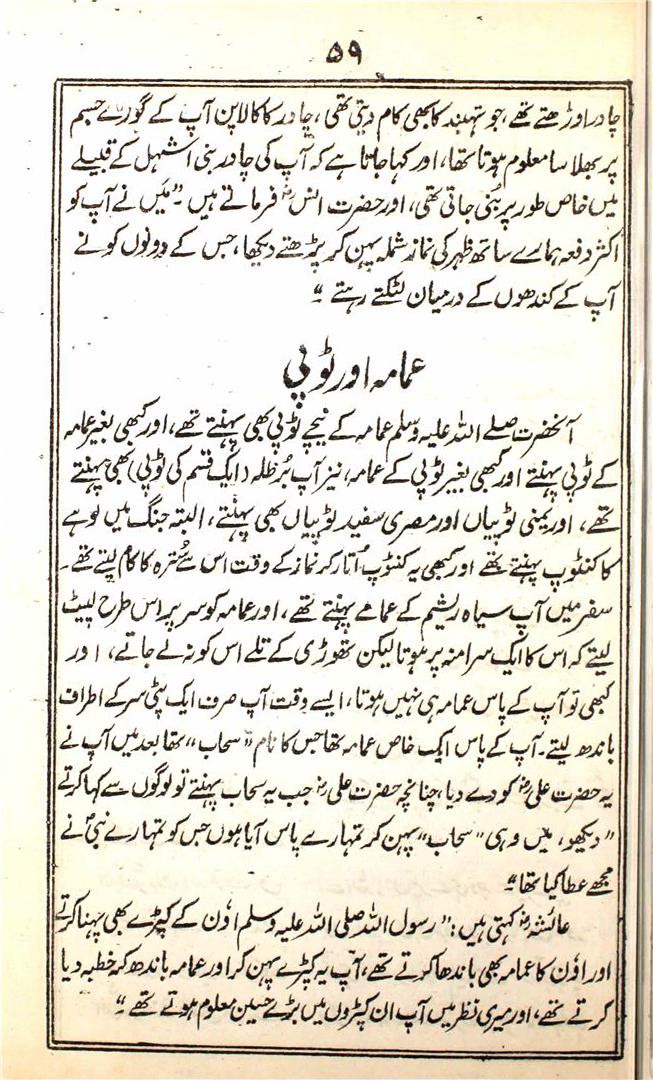 ۵۹
چادر اوڑھتے تھے، جو تہبند کا بھی کام دیتی تھی، چادر کا کالا پن آپ کے گورے جسم
پر بھلا سا معلوم ہوتا تھا، اور کہا جاتا ہے کہ آپ کی چادر بنی اشہل کے قبیلے
میں خاص طور پر بُنی جاتی تھی، اور حضرت انسؓ فرماتے ہیں۔ "میں نے آپ کو
اکثر دفعہ ہمارے ساتھ ظہر کی نماز شملہ پہن کر پڑھتے دیکھا، جس کے دونوں کونے
آپ کے کندھوں کے درمیان لٹکتے رہتے۔"
عمامہ اور ٹوپی
آنحضرت صلے اللہ علیہ وسلم عمامہ کے نیچے ٹوپی بھی پہنتے تھے، اور کبھی بغیر عمامہ
کے ٹوپی پہنتے اور کبھی بغیر ٹوپی کے عمامہ، نیز آپ بُرطلہ (ایک قسم کی ٹوپی) بھی پہنتے
تھے، اور یمنی ٹوپیاں اور مصری سفید ٹوپیاں بھی پہنتے، البتہ جنگ میں لوہے
کا کنٹوپ پہنتے تھے اور کبھی یہ کنٹوپ اُتار کر نماز کے وقت اس سے سُترہ کا کام لیتے تھے۔
سفر میں آپ سیاہ ریشم کے عمامے پہنتے تھے، اور عمامہ کو سر پر اس طرح لپیٹ
لیتے کہ اس کا ایک سرا منہ پر ہوتا لیکن ٹھوڑی کے تلے اس کو نہ لے جاتے، اور
کبھی تو آپ کے پاس عمامہ ہی نہیں ہوتا، ایسے وقت آپ صرف ایک پٹی سر کے اطراف
باندھ لیتے۔ آپ کے پاس ایک خاص عمامہ تھا جس کا نام "سحاب" تھا بعد میں آپ نے
یہ حضرت علیؓ کو دے دیا، چنانچہ حضرت علیؓ جب یہ سحاب پہنتے تو لوگوں سے کہا کرتے
"دیکھو، میں وہی "سحاب" پہن کر تمہارے پاس آیا ہوں جس کو تمہارے نبیؐ نے
مجھے عطا کیا تھا"۔
عائشہؓ کہتی ہیں: "رسول اللہ صلی اللہ علیہ وسلم اون کے کپڑے بھی پہنا کرتے
اور اون کا عمامہ بھی باندھا کرتے تھے، آپ یہ کپڑے پہن کر اور عمامہ باندھ کر خطبہ دیا
کرتے تھے، اور میری نظر میں آپ ان کپڑوں میں بڑے حسین معلوم ہوتے تھے۔"